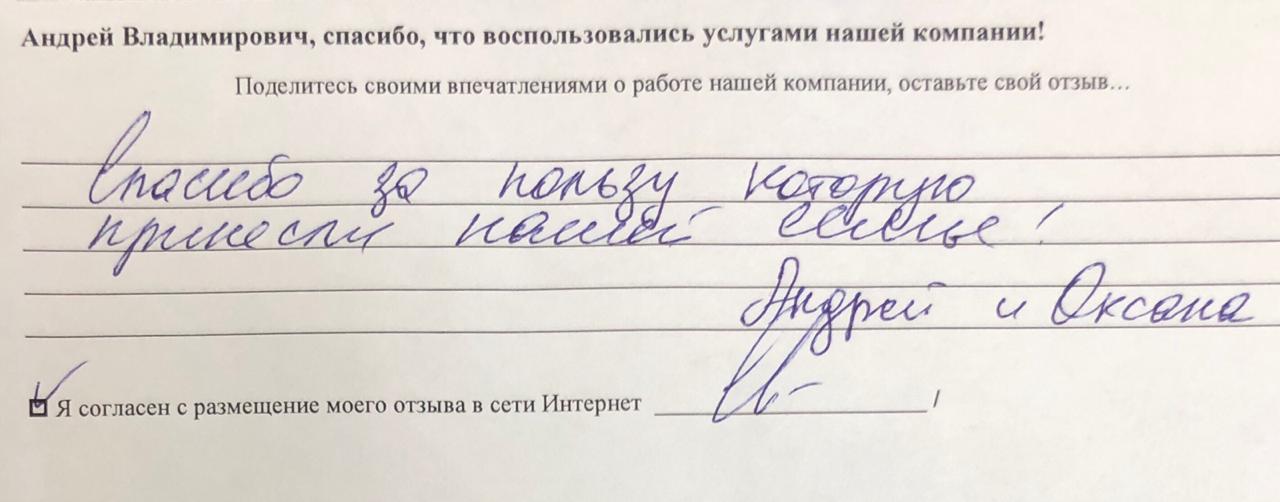 Андрей Владимирович, спасибо, что воспользовались услугами нашей компании!
Поделитесь своими впечатлениями о работе нашей компании, оставьте свой отзыв...
Спасибо за пользу которую
принесли нашей семье!
Андрей и Оксана
Я согласен с размещение моего отзыва в сети Интернет /